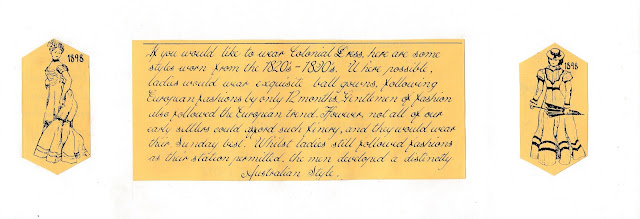 1898
If you would like to wear Colonial Dress, here are some
styles worn from the 1820's - 1890's. Where possible,
ladies would wear exquisite ball gowns, following
European fashions by only 12 months. Gentlemen of fashion
also followed the European trend. However, not all of our
early settlers could afford such finery, and they would wear
their "Sunday best". Whilst ladies still followed fashions
as their station permitted, the men developed a distinctly
Australian Style.
1898